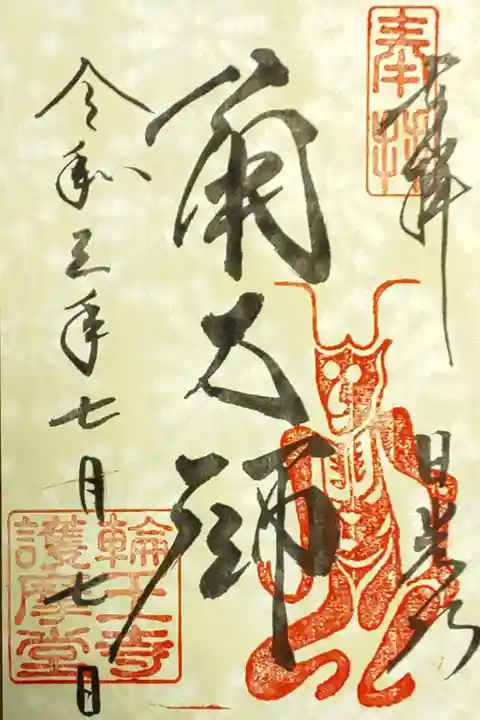 奉拝
奉拝
日光山
角大師
令和三年七月七日
輪王寺
護摩堂